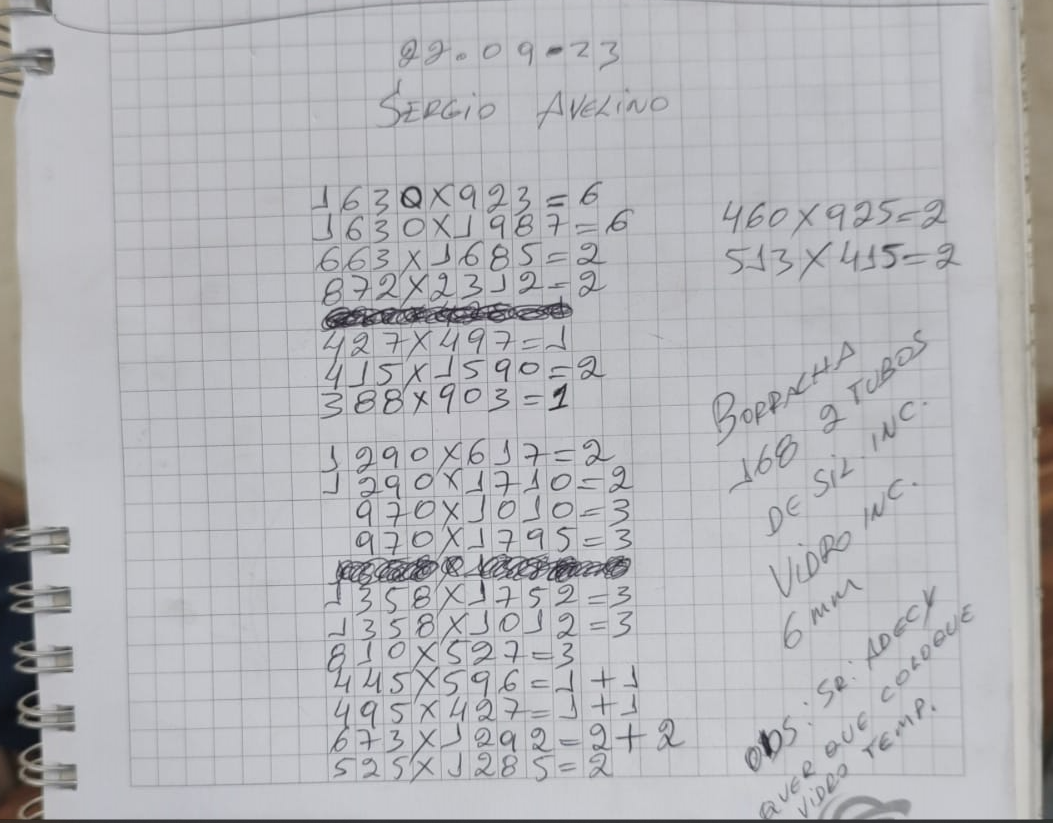 22.09-23
SERGIO AVELINO
1630X923=6
1630X1987=6
663X1685=2
872X2312=2
427X497=1
415X1590=2
388X903=1
1290X617=2
1290X1710=2
970X1010=3
970X1795=3
1358X1752=3
1358X1012=3
810X527=3
445X596=1+1
495X427=1+1
673X1292=2+2
525X1285=2
460X925=2
513X415=2
BORRACHA
168 2 TUBOS
DE SIL INC.
VIDRO INC.
6mm
OBS: SR: ADECY
QUER QUE COLOQUE
VIDRO TEMP.